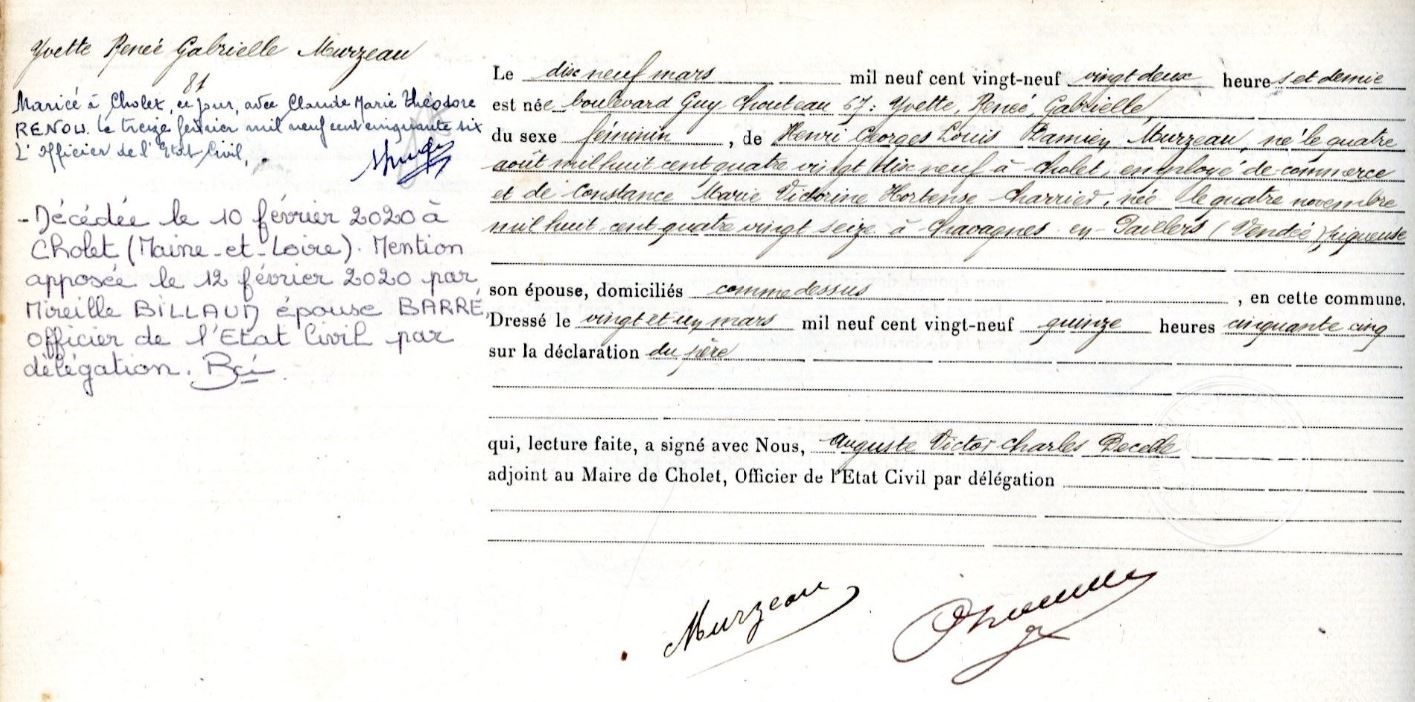 Yvette Renée Gabrielle Murzeau
81
Mariée à Cholet, ce jour, avec Claude Marie Théodore
RENOU. Le treize février mil neuf cent cinquante six
L'officier de l'Etat Civil,
- Décédée le 10 février 2020 à
Cholet (Maine-et-Loire). Mention
apposée le 12 février 2020 par
Mireille BILLAUD épouse BARRÉ,
officier de l'Etat Civil par
délégation.
Le dix neuf mars mil neuf cent vingt-neuf vingt deux heures et demie
est née boulevard Guy Chouteau 57 : Yvette, Renée, Gabrielle,
du sexe féminin, de Henri Georges Louis Murzeau, né le quatre
août mil huit cent quatre vingt dix neuf à Cholet, employé de commerce
et de Constance Marie Victorine Hortense Charrier, née le quatre novembre
mil huit cent quatre vingt seize à Chavagnes-en-Paillers (Vendée) piqueuse
son épouse, domiciliés comme dessus, en cette commune.
Dressé le vingt et un mars mil neuf cent vingt-neuf quinze heures cinquante cinq
sur la déclaration du père
qui, lecture faite, a signé avec Nous, Auguste Victor Charles
adjoint au Maire de Cholet, Officier de l'Etat Civil par délégation
Murzeau